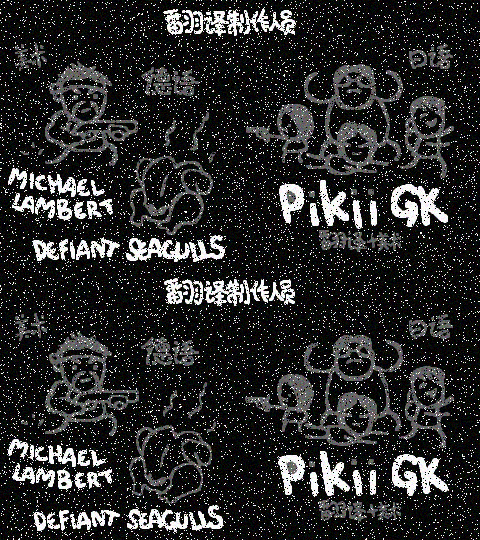 翻译制作人员
美术
德语
日语
MICHAEL
LAMBERT
DEFIANT SEAGULLS
Pikii GK
翻译+美术
翻译制作人员
美术
德语
日语
MICHAEL
LAMBERT
DEFIANT SEAGULLS
Pikii GK
翻译+美术